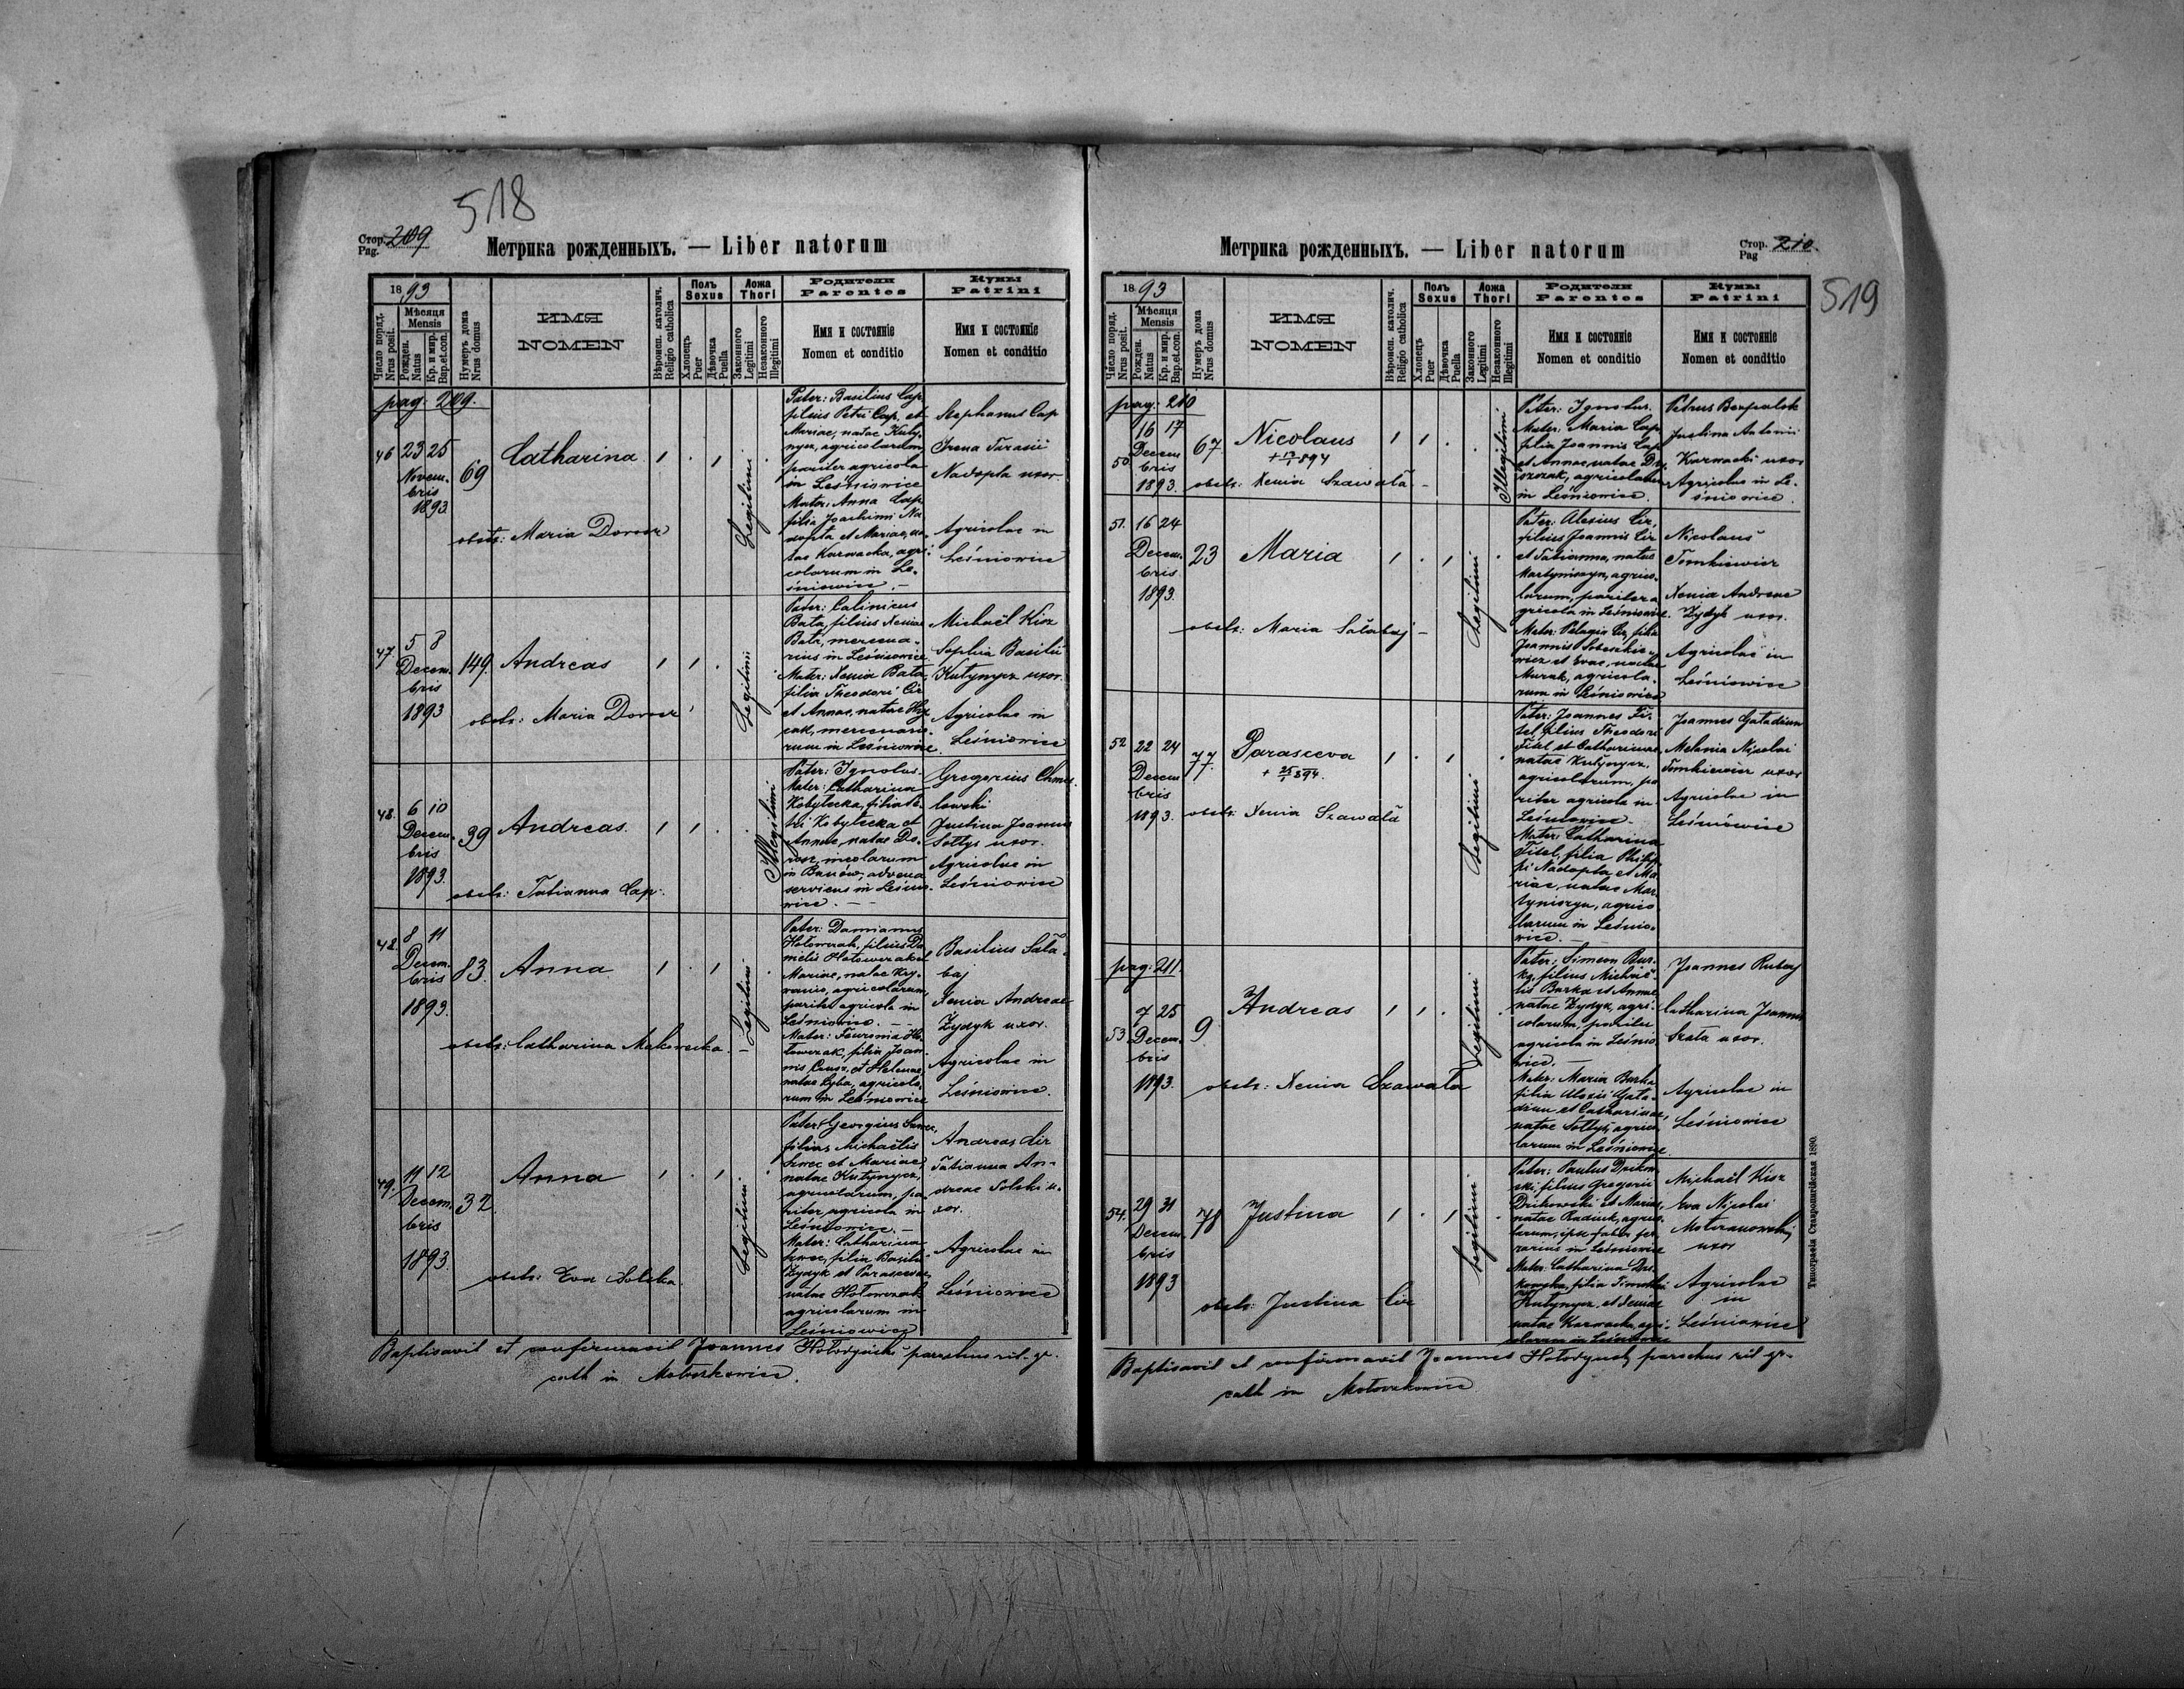 518
Стор. 209
Pag.
Метрика рожденныхъ. — Liber natorum
1893
Число поряд.
Nrus posit.
Мѣсяця
Mensis
Рожден.
Natus
Кр. и мир.
Bap.et.con.
Нумеръ дома
Nrus domus
ИМЯ
NOMEN
Вѣроисп. католич.
Religio catholica
Полъ
Sexus
Хлопець
Puer
Дѣвочка
Puella
Ложа
Thori
Законного
Legitimi
Незаконного
Illegitimi
Родители
Parentes
Имя и состояніе
Nomen et conditio
Кумы
Patrini
Имя и состояніе
Nomen et conditio
pag: 209.
46 23 25
Novem.
bris
1893.
69
Catharina
obsts: Maria Dorosz
Legitimi
Pater: Basilius Cap
filius Petri Cap, et
Mariae, natae Kuty-
nycz, agricolarum
pariter agricola
in Leśniowice
Mater: Anna Cap
filia Joachimi Na
dopta et Mariae, na
tae Karwacka, agri
colarum in Le.
śniowice.—
Stephanus Cap
Irena Tarasii
Nadopta uxor
Agricolae in
Leśniowice
47. 5 8
Decem.
bris
1893
149.
Andreas
obsts: Maria Dorosz
Legitimi
Pater: Calinicus
Bata, filius Xeniae
Bata, mercena.
rius in Leśniowice
Mater: Xenia Bata,
filia Theodori Cir
et Annae, natae
mercenario.
rum in Leśniowice
Michaël Kisz
Sophia Basilii
Kutynycz uxor.
Agricolae in
Leśniowice
48. 6 10
Decem.
bris
1893.
39
Andreas.
obsts: Tatianna Cap.
Illegitimi
Pater: Ignotus.
Mater: Catharina
Kobyłecka, filia Pe.
tri Kobyłecka et
Annae, natae Do.
rosz, incolarum
in advena
serviens in Leśnio.
wice.—
Gregorius
lowski
Justina Joannis
Sołtys uxor.
Agricolae in
Leśniowice
48. 8 11
Decem.
bris
1893.
83.
Anna
obsts: Catharina Makowecka
Legitimi
Pater: Damianus
Hołowczak, filius Da
nielis Hołowczak et
Mariae, natae
agricolarum,
pariter agricola in
Leśniowice.—
Mater: Fevronia Ho
łowczak, filia Joan
nis et Helenae,
natae Cyba, agricola.
rum in Leśniowice
Basilius Sała.
baj
Xenia Andreae
Zydyk uxor.
Agricolae in
Leśniowice.
49. 11 12
Decem.
bris
1893.
32
Anna
obsts: Eva Solska
Legitimi
Pater: Georgius Szwec,
filius Michaëlis
Szwec et Mariae,
natae Kutynycz,
agricolarum, pa
riter agricola in
Leśniowice.—
Mater: Catharina
Szwec, filia Basilii
Zydyk et Parascevae,
natae Hołowczak
agricolarum in
Leśniowice
Andreas Cir
Tatianna An-
dreae Solski u.
xor.
Agricolae in
Leśniowice
Baptisavit et confirmavit Joannes Hołodyński parochus rit. gr.
cath in Mołoszkowice.
Метрика рожденныхъ. — Liber natorum
Стор. 210.
Pag
519
1893
Число поряд.
Nrus posit.
Мѣсяця
Mensis
Рожден.
Natus
Кр. и мир.
Bap.et.con.
Нумеръ дома
Nrus domus
ИМЯ
NOMEN
Вѣроисп. католич.
Religio catholica
Полъ
Sexus
Хлопець
Puer
Дѣвочка
Puella
Ложа
Thori
Законного
Legitimi
Незаконного
Illegitimi
Родители
Parentes
Имя и состояніе
Nomen et conditio
Кумы
Patrini
Имя и состояніе
Nomen et conditio
pag: 210
50. 16 17
Decem
bris
1893.
67
Nicolaus
obsts: Xenia Szawała
Illegitimi
Pater: Ignotus.
Mater: Maria Cap
filia Joannis Cap
et Annae natae
agricolarum
in Leśniowice.
Petrus
Justina Antonii
Karwacki uxor
Agricolae in Le.
śniowice.
51. 16 24
Decem.
bris
1893.
23
Maria
obsts: Maria Sałabaj
Legitimi
Pater: Alexius Cir,
filius Joannis Cir
et Tatianna, natae
Martyniszyn, agrico.
larum, pariter a
gricola in Leśniowice.
Mater: Pelagia Cir, filia
Joannis
et Evae, natae
agricola.
rum in Leśniowice
Nicolaus
Tomkiewicz
Xenia Andreae
Zydyk uxor.
Agricolae in
Leśniowice
52 22 24
Decem
bris
1893.
77.
Parasceva
obsts: Xenia Szawała
Legitimi
Pater: Joannes Fi.
sel filius Theodori
Fisel et Catharinae,
natae Kutynycz,
agricolarum, pa
riter agricola in
Leśniowice.
Mater: Catharina
Fisel, filia Philip
pi Nadopta, et Ma
riae, natae Mar.
tyniszyn, agrico.
larum in Leśnio.
wice.—
Joannes Gaładiun
Melania Nicolai
Tomkiewicz uxor
Agricolae in
Leśniowice
pag: 211.
53 7 25
Decem.
bris
1893.
9
Andreas
obsts: Xenia Szawała
Legitimi
Pater: Simeon Bur.
ka, filius Michaë.
lis Burka et Annae
natae Zydyk, agri.
colarum, pariter
agricola in Leśnio.
wice.—
Mater: Maria Burka
filia Alexii Gała.
diun et Catharinae,
natae Sołtys, agrico.
larum in Leśniowice.
Joannes Rubaj
Catharina Joannis
Szata uxor.
Agricolae in
Leśniowice
54. 29 31
Decem.
bris
1893
78
Justina
obsts: Justina Cir
Legitimi
Pater: Paulus
filius Gregorii
et Mariae,
natae agrico.
larum, ipse faber fer
rarius in Leśniowice
Mater: Catharina
filia
Kutynycz, et Xeniae
natae Karwacka, agri.
colarum in Leśniowice
Michaël Kisz
Eva Nicolai
uxor
Agricolae
in
Leśniowice
Baptisavit et confirmavit Joannes Hołodyński parochus rit gr.
cath in Mołoszkowice
Типографія Ставропигійская 1890.